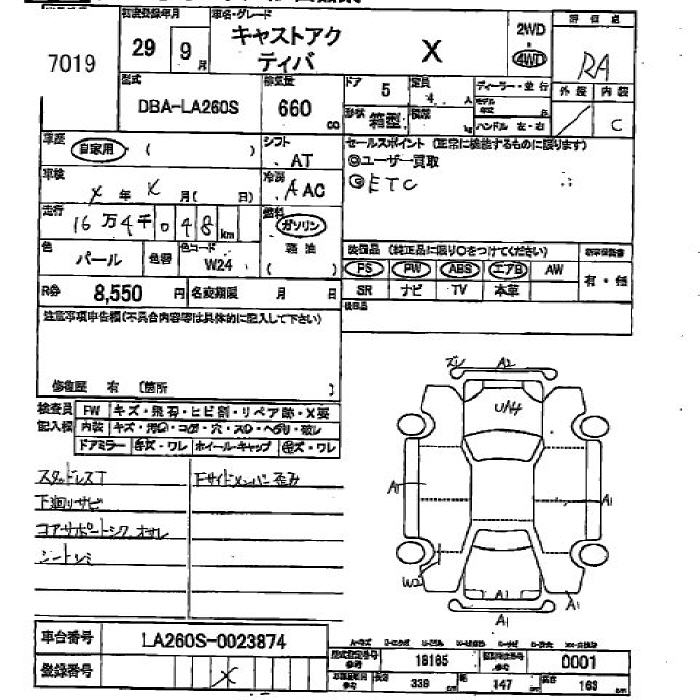 初度登録年月
車名・グレード
評価点
7019
29 9 月
キャストアク
ティバ
X
2WD
4WD
RA
外装 内装
C
型式
DBA-LA260S
排気量
660 cc
ドア 5
定員 4 人
形状 箱型
積載 kg
ディーラー・並行
モデル
ハンドル 左・右
車歴
自家用 ( )
シフト
AT
セールスポイント (正常に機能するものに限ります)
◎ユーザー買取
◎ETC
車検
X 年 X 月( 日)
冷房
AAC
走行
16万4千048km
燃料
ガソリン
軽油
( )
色
パール
色替
色コード
W24
装備品 (純正品に限り○をつけてください)
PS PW ABS エアB AW
SR ナビ TV 本革
新車保証書
有・無
R券 8,550 円
名変期限 月 日
後日品
注意事項申告欄(不具合内容等は具体的に記入して下さい)
修復歴 有 (箇所 )
検査員
記入欄
FW キズ・飛石・ヒビ割・リペア跡・X要
内装
ドアミラー キズ・ワレ ホイール・キャップ キズ・ワレ
スタッドレスT
下廻りサビ
コアサポートシタ オサレ
シートシミ
Fサイドメンバー歪み
ズレ A2
U14
A1
A1
W2
A1
A1
A1
車台番号 LA260S-0023874
登録番号 X
型式指定番号 参考 18165
類別区分番号 参考 0001
参考 長さ 339 cm 幅 147 cm 高さ 163 cm